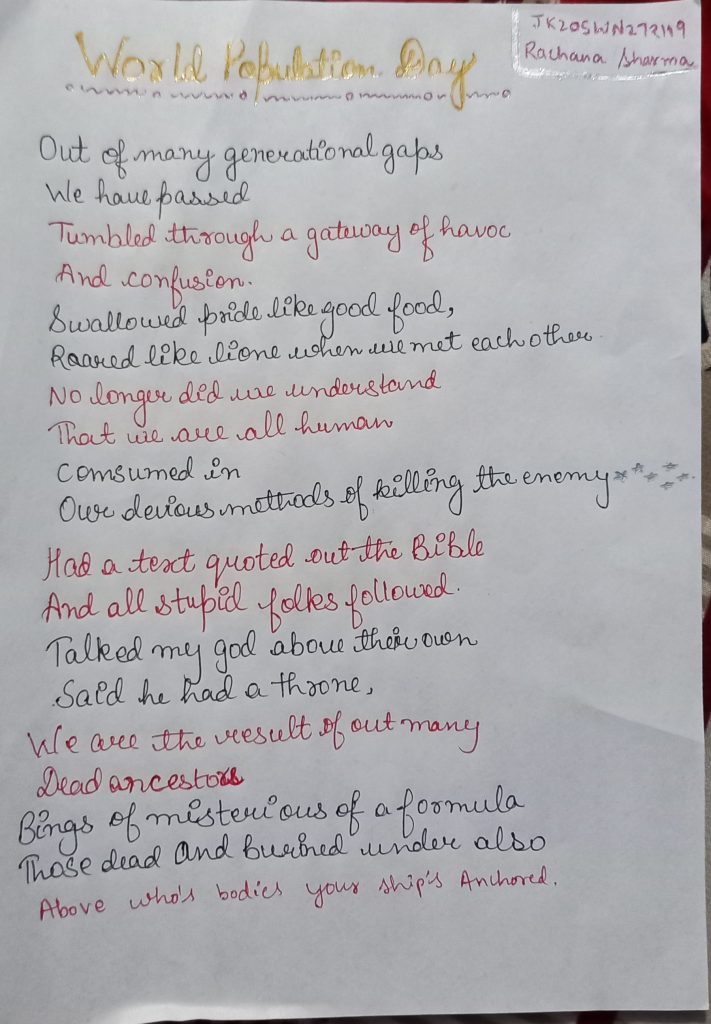 World Population Day
JK20SWN272119
Rachana Sharma
Out of many generational gaps
We have passed
Tumbled through a gateway of havoc
And confusion.
Swallowed pride like good food,
Roared like lione when we met each other.
No longer did we understand
That we are all human
Comsumed in
Our devious methods of killing the enemy
Had a text quoted out the Bible
And all stupid folks followed.
Talked my god above their own
Said he had a throne,
We are the result of out many
Dead ancestors
Bings of misterious of a formula
Those dead and buried under also
Above who's bodies your ship's Anchored.